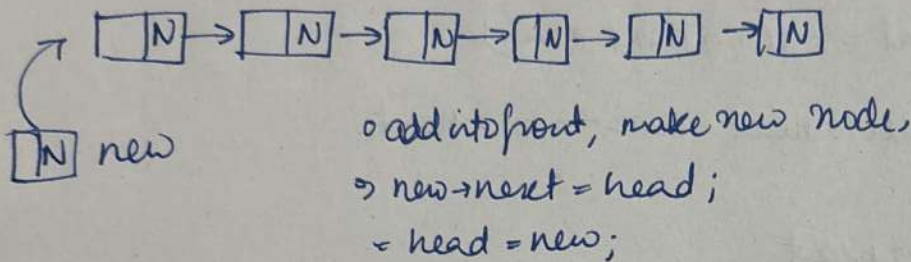 N N N N N N
N new
add into front, make new node,
new→next = head;
head = new;